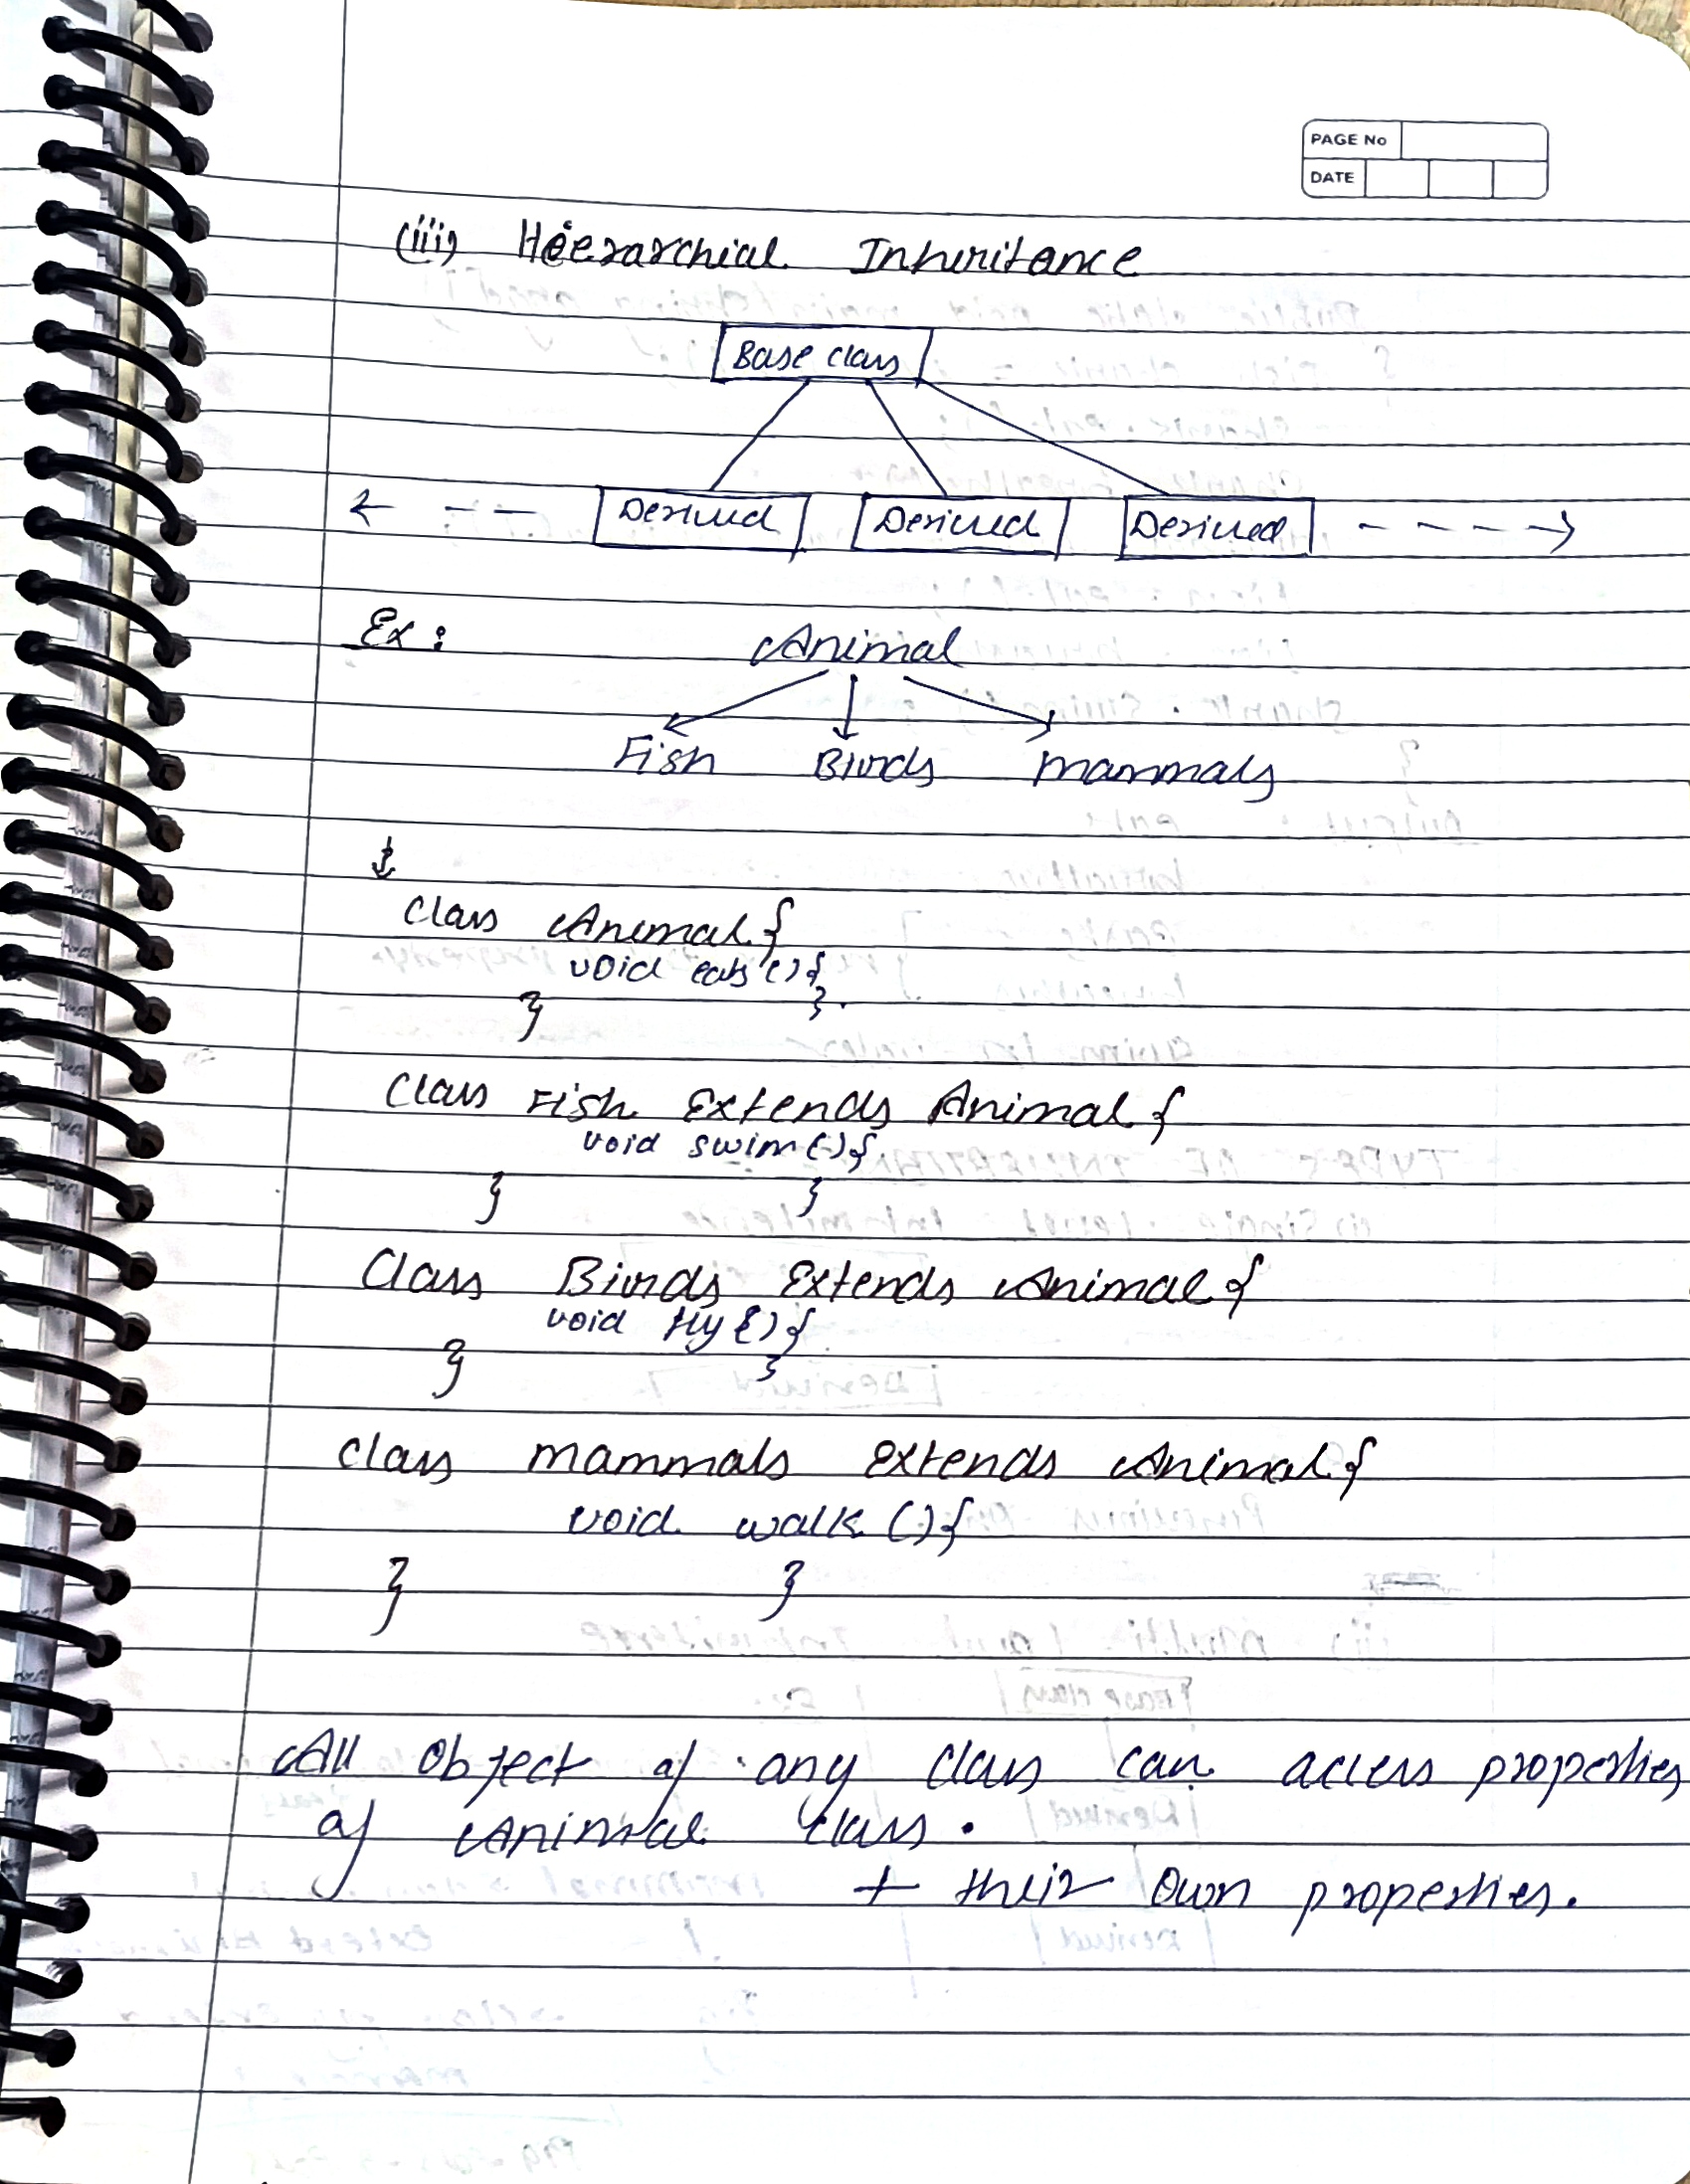 PAGE No
DATE
(iii) Heierarchial Inheritance
Base class
Derived Derived Derived
Ex:
Animal
Fish Birds mammals
Class Animal {
void eats () {
} }
Class Fish Extends Animal {
void swim () {
} }
Class Birds Extends Animal {
void fly () {
} }
Class mammals extends Animal {
void walk () {
} }
All Object of any class can access properties
of Animal class.
+ their own properties.